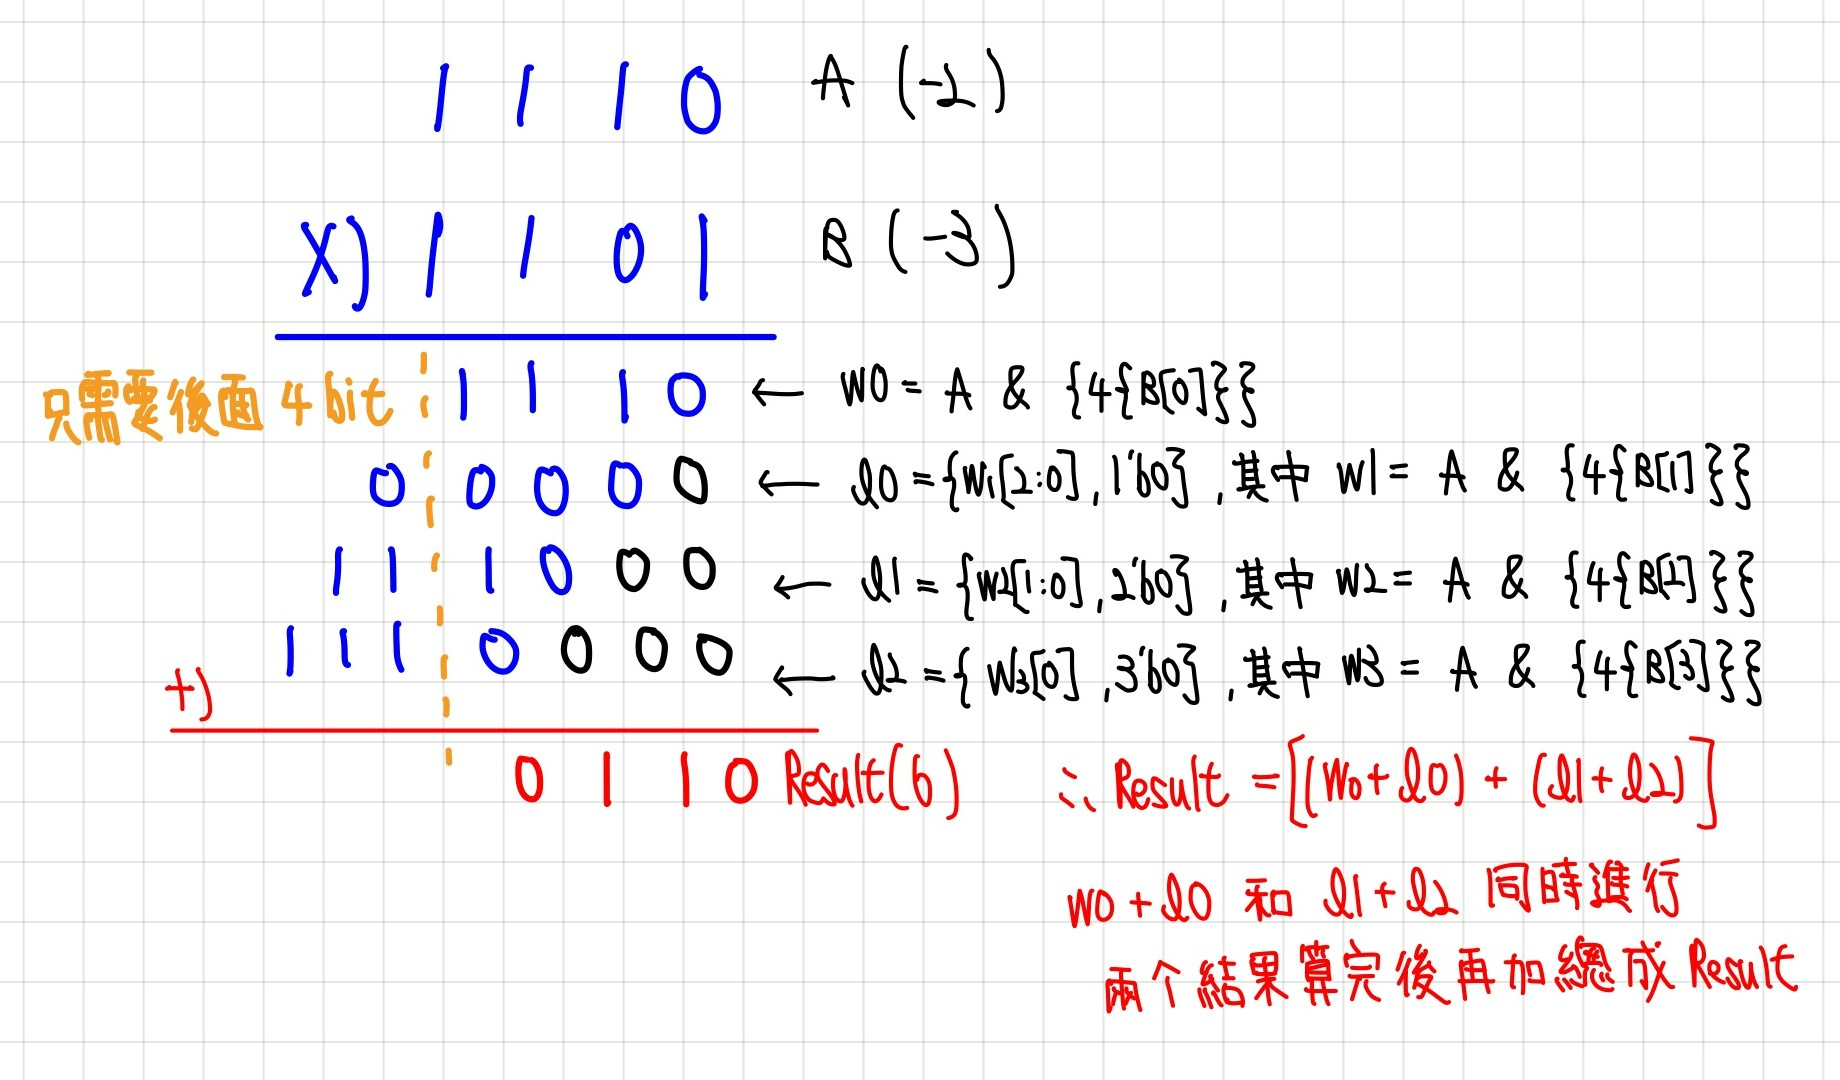 1 1 1 0 A (-2)
X) 1 1 0 1 B (-3)
只需要後面 4 bit 1 1 1 0 ← W0 = A & {4{B[0]}}
0 0 0 0 0 ← l0 = {W1[2:0], 1'b0}, 其中 W1 = A & {4{B[1]}}
1 1 1 0 0 0 ← l1 = {W2[1:0], 2'b0}, 其中 W2 = A & {4{B[2]}}
1 1 1 0 0 0 0 ← l2 = {W3[0], 3'b0}, 其中 W3 = A & {4{B[3]}}
+)
0 1 1 0 Result(6) ∴ Result = [(W0+l0) + (l1+l2)]
W0 + l0 和 l1 + l2 同時進行
兩个結果算完後再加總成 Result